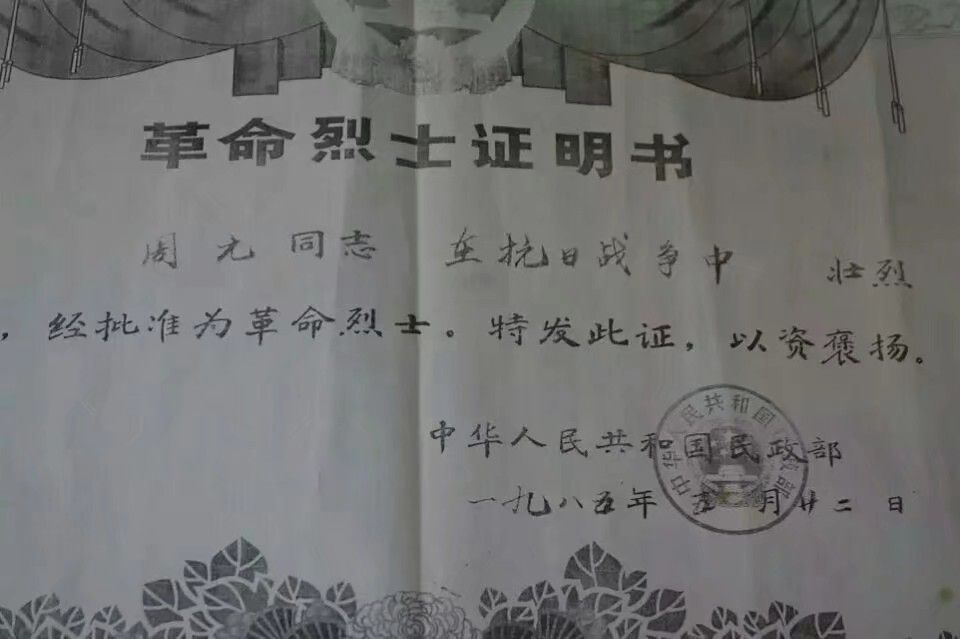 革命烈士证明书
周元同志 在抗日战争中 壮烈
，经批准为革命烈士。特发此证，以资褒扬。
中华人民共和国民政部
一九八五年五月廿二日
中华人民共和国民政部